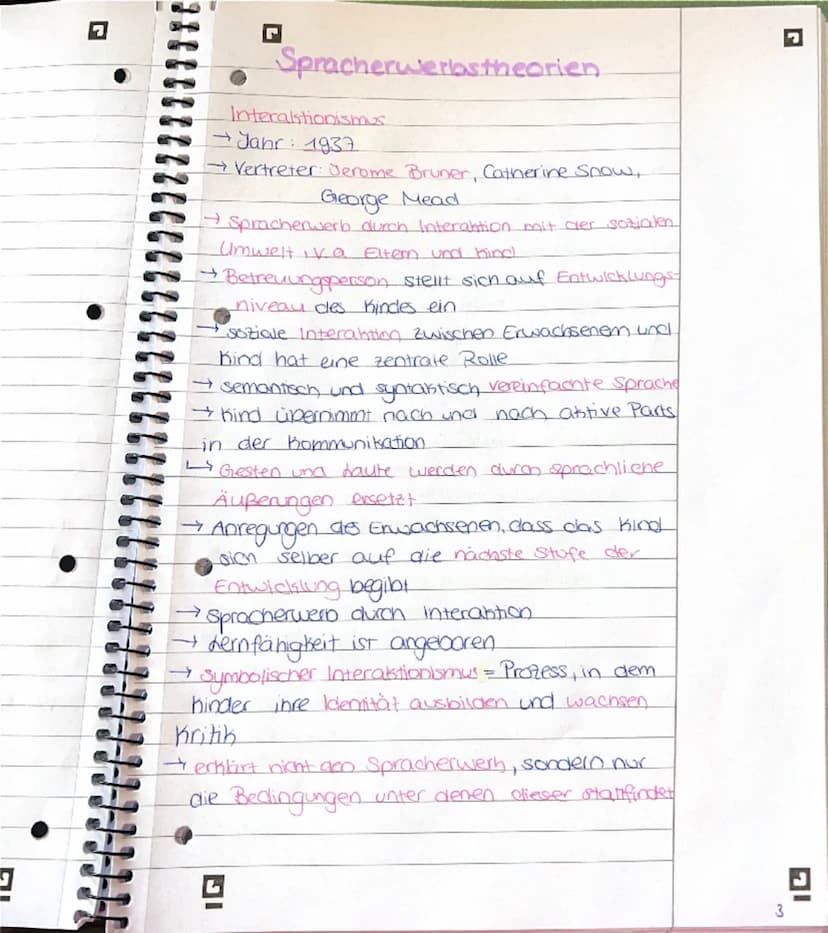 Spracherwerbstheorien
Interaktionismus
→ Jahr: 1937
→ Vertreter: Jerome Bruner, Catherine Snow,
George Mead
→ Spracherwerb durch Interaktion mit der sozialen
Umwelt, v.a Eltern und Kind
→ Betreuungsperson stellt sich auf Entwicklungs-
niveau des Kindes ein
→ soziale Interaktion zwischen Erwachsenem und
Kind hat eine zentrale Rolle
→ semantisch und syntaktisch vereinfachte Sprache
→ Kind übernimmt nach und nach aktive Parts
in der Kommunikation
↳ Gesten und Laute werden durch sprachliche
Äußerungen ersetzt
→ Anregungen des Erwachsenen, dass das Kind
sich selber auf die nächste Stufe der
Entwicklung begibt
→ Spracherwerb durch Interaktion
→ Lernfähigkeit ist angeboren
→ symbolischer Interaktionismus = Prozess, in dem
Kinder ihre Identität ausbilden und wachsen
Kritik
→ erklärt nicht den Spracherwerb, sondern nur
die Bedingungen unter denen dieser stattfindet
3